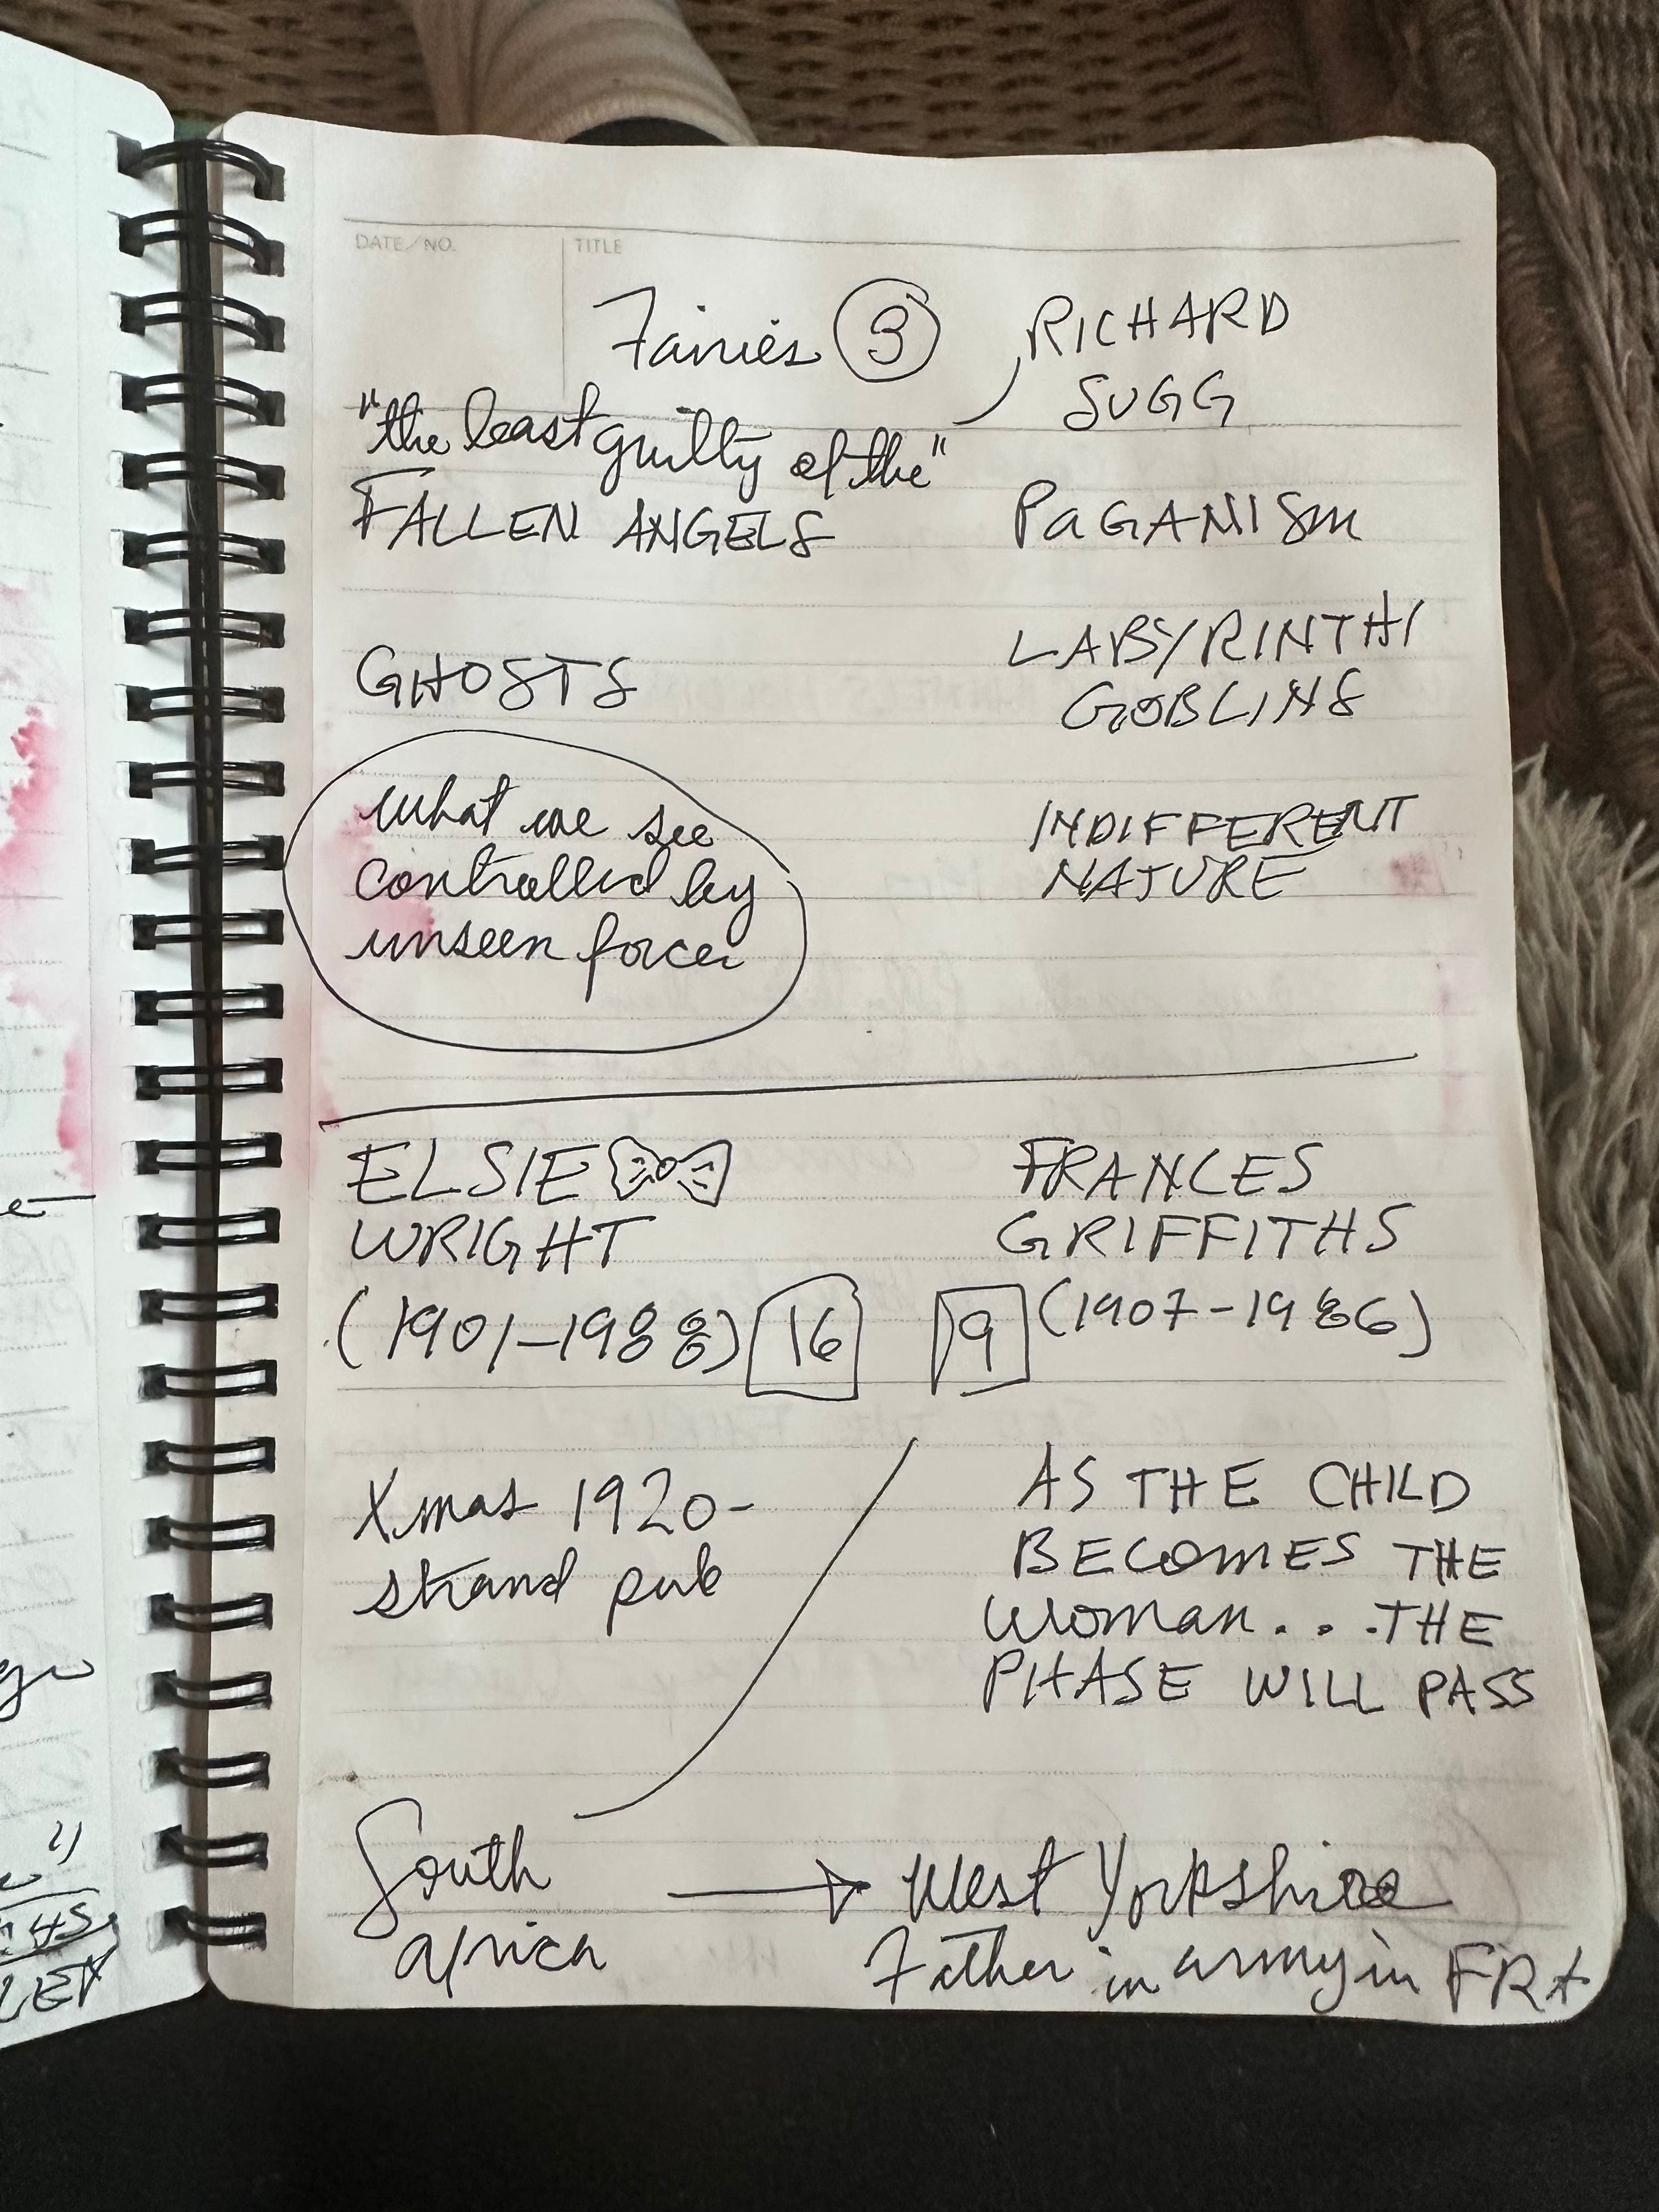 DATE/NO.
TITLE
Fairies 3
RICHARD
SUGG
"the least guilty of the"
FALLEN ANGELS
PAGANISM
GHOSTS
LABYRINTH/
GOBLINS
What we see
controlled by
unseen forces
INDIFFERENT
NATURE
ELSIE
WRIGHT
(1901-1988) 16
FRANCES
GRIFFITHS
9 (1907-1986)
Xmas 1920-
strand pub
AS THE CHILD
BECOMES THE
WOMAN...THE
PHASE WILL PASS
South
Africa
West Yorkshire
Father in army in FRA
45